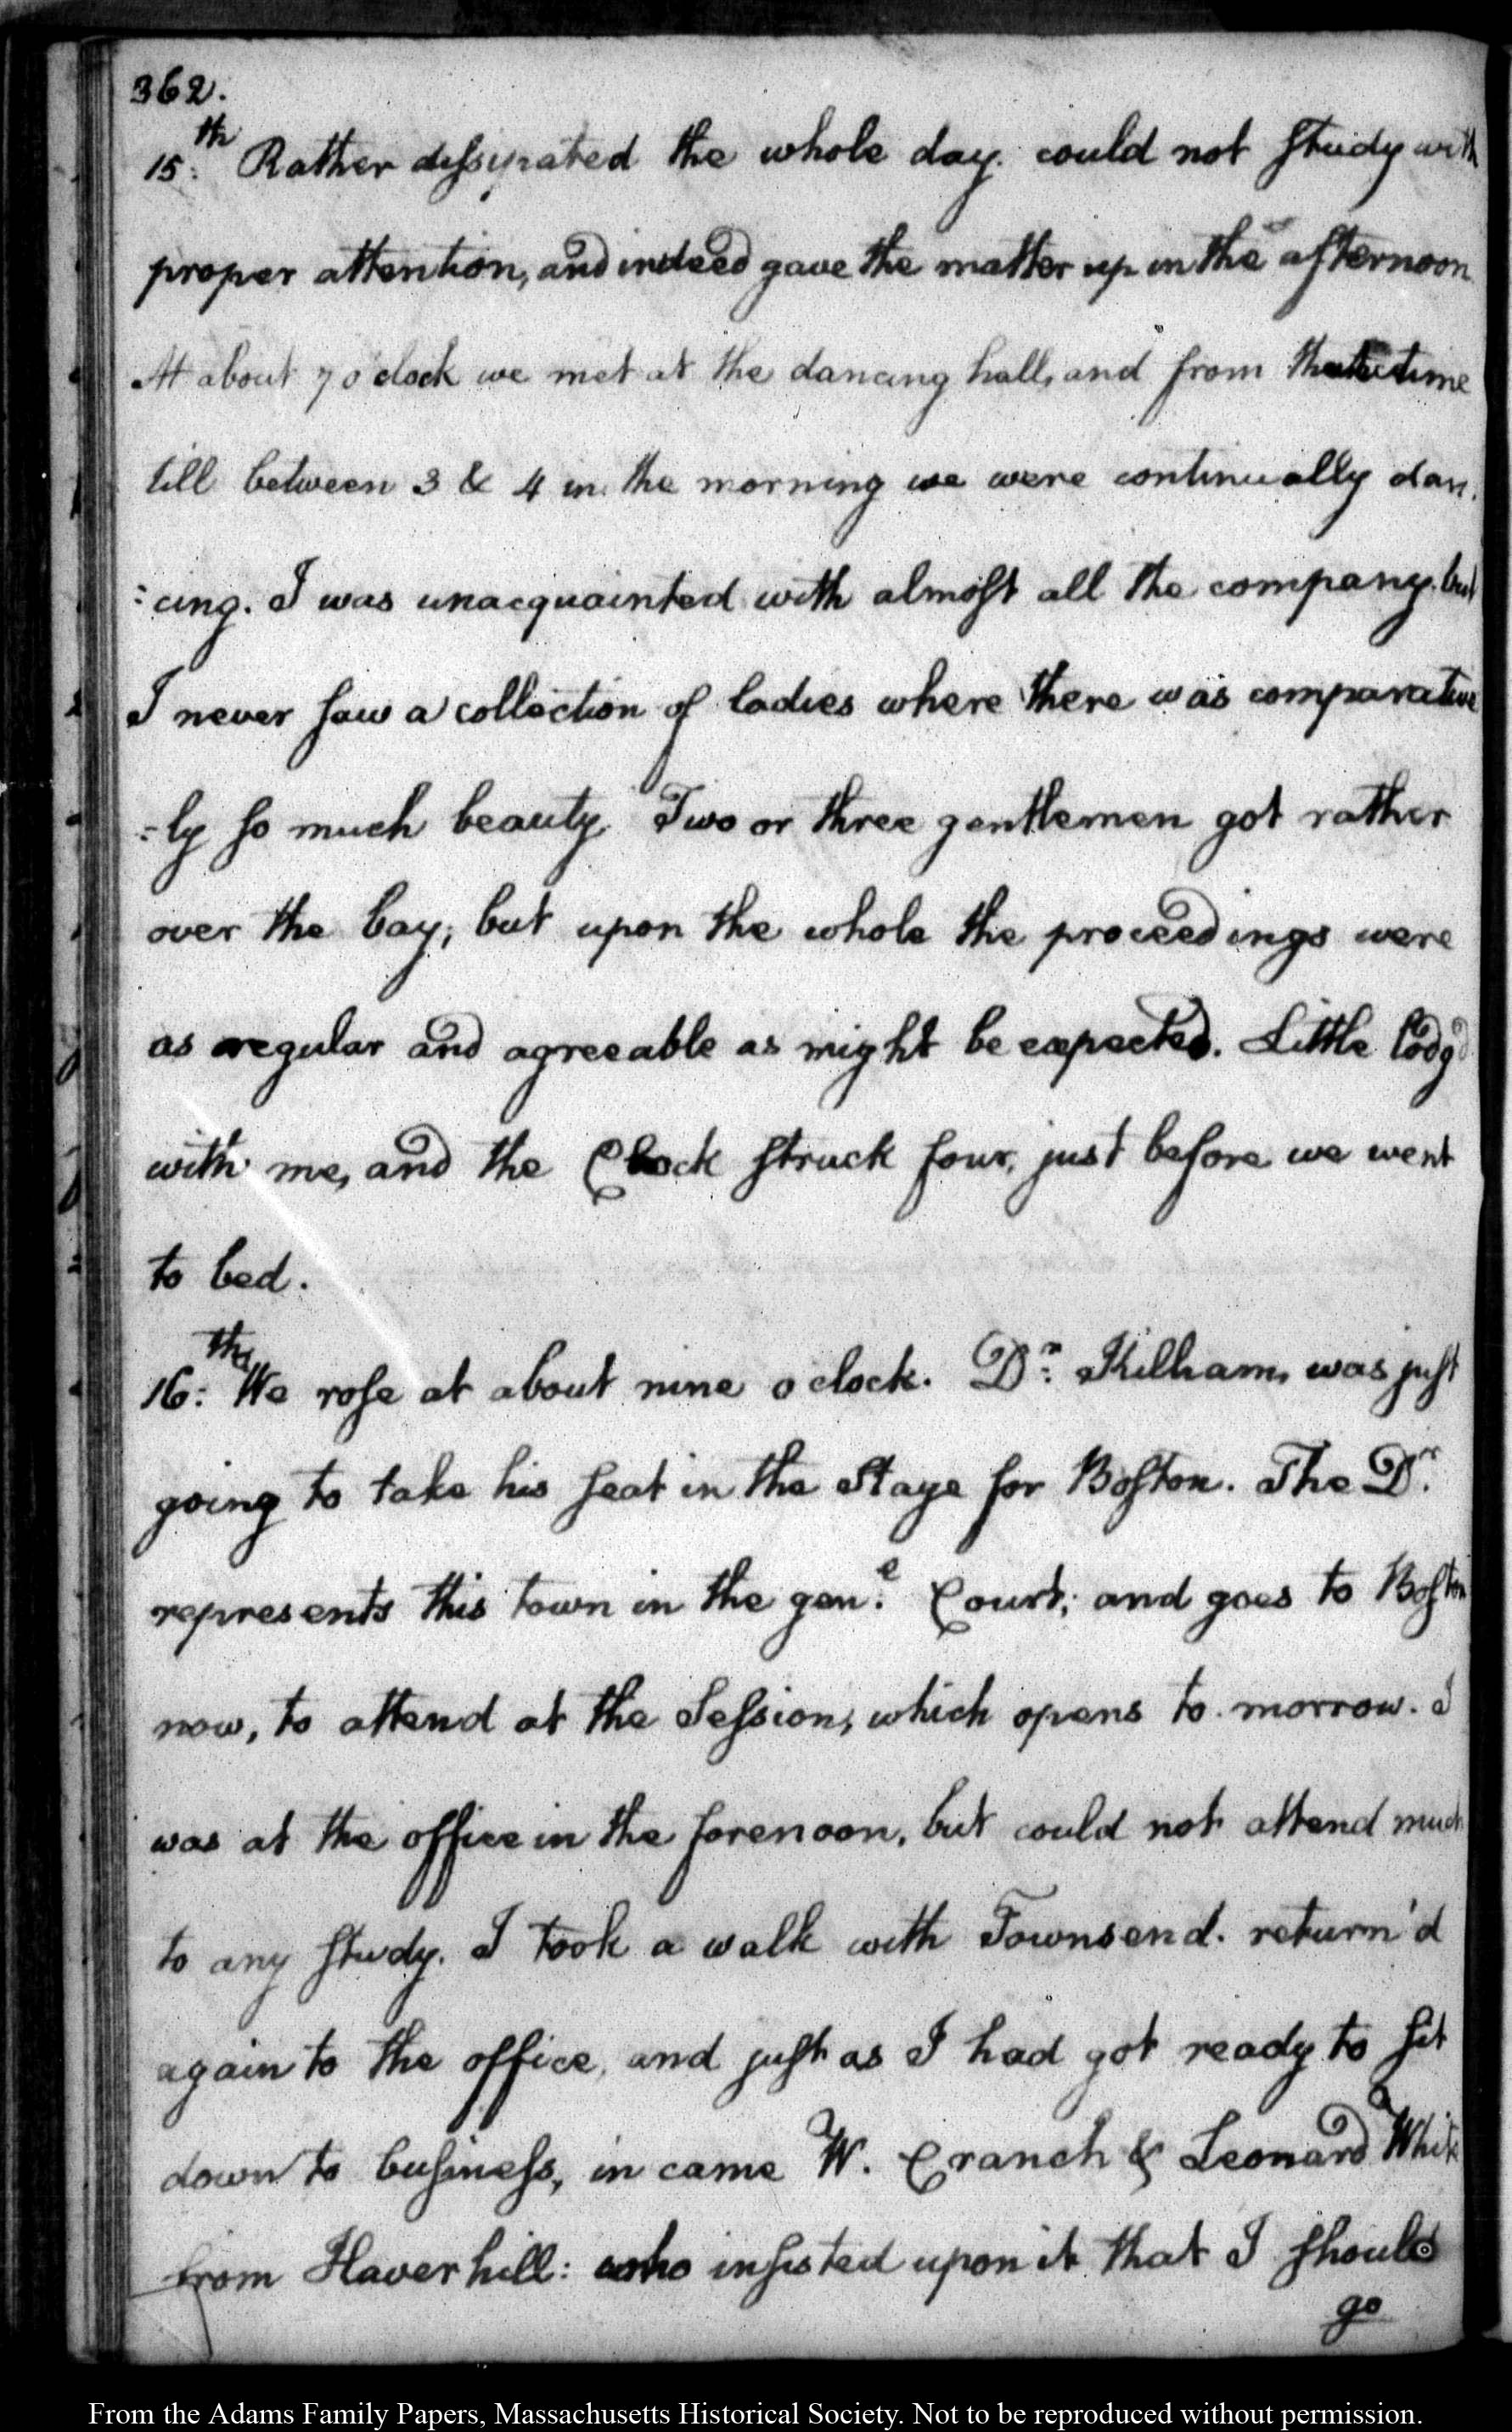 362.
15:th Rather dissipated the whole day. could not study with
proper attention, and indeed gave the matter up in the afternoon
At about 7 o'clock we met at the dancing hall, and from time
till between 3 & 4 in the morning we were continually dan,
:cing. I was unacquainted with almost all the company. but
I never saw a collection of ladies where there was comparative
:ly so much beauty. Two or three gentlemen got rather
over the bay; but upon the whole the proceedings were
as regular and agreeable as might be expected. Little lodg'd
with me, and the Clock struck four, just before we went
to bed.
16:th We rose at about nine o clock. Dr. Kilham, was just
going to take his seat in the Stage for Boston. The Dr.
represents this town in the genl. Court; and goes to Boston
now, to attend at the Session, which opens to morrow. I
was at the office in the forenoon, but could not attend much
to any study. I took a walk with Townsend. return'd
again to the office, and just as I had got ready to sit
down to business, in came W. Cranch & Leonard White
from Haverhill: who insisted upon it that I should
go
From the Adams Family Papers, Massachusetts Historical Society. Not to be reproduced without permission.